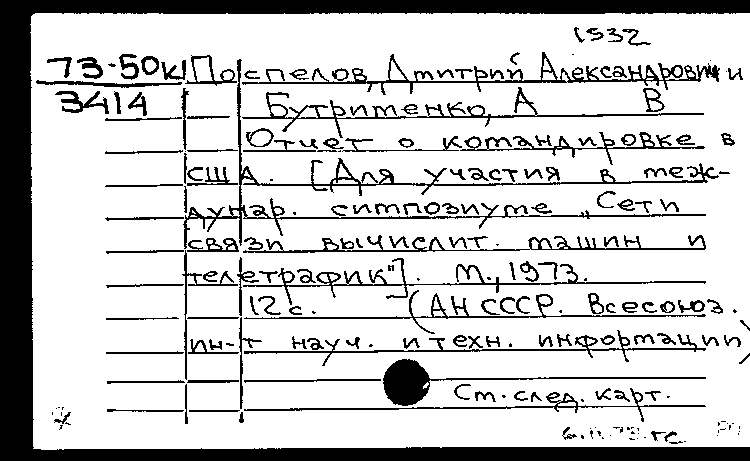 1932
73-50к Поспелов, Дмитрий Александрович и
3414 Бутрименко, А В
Отчет о командировке в
США. [Для участия в меж-
дунар. симпозиуме „Сети
связи вычислит. машин и
телетрафик"]. М., 1973.
12 с. (АН СССР. Всесоюз.
ин-т науч. и техн. информации)
См. след. карт.